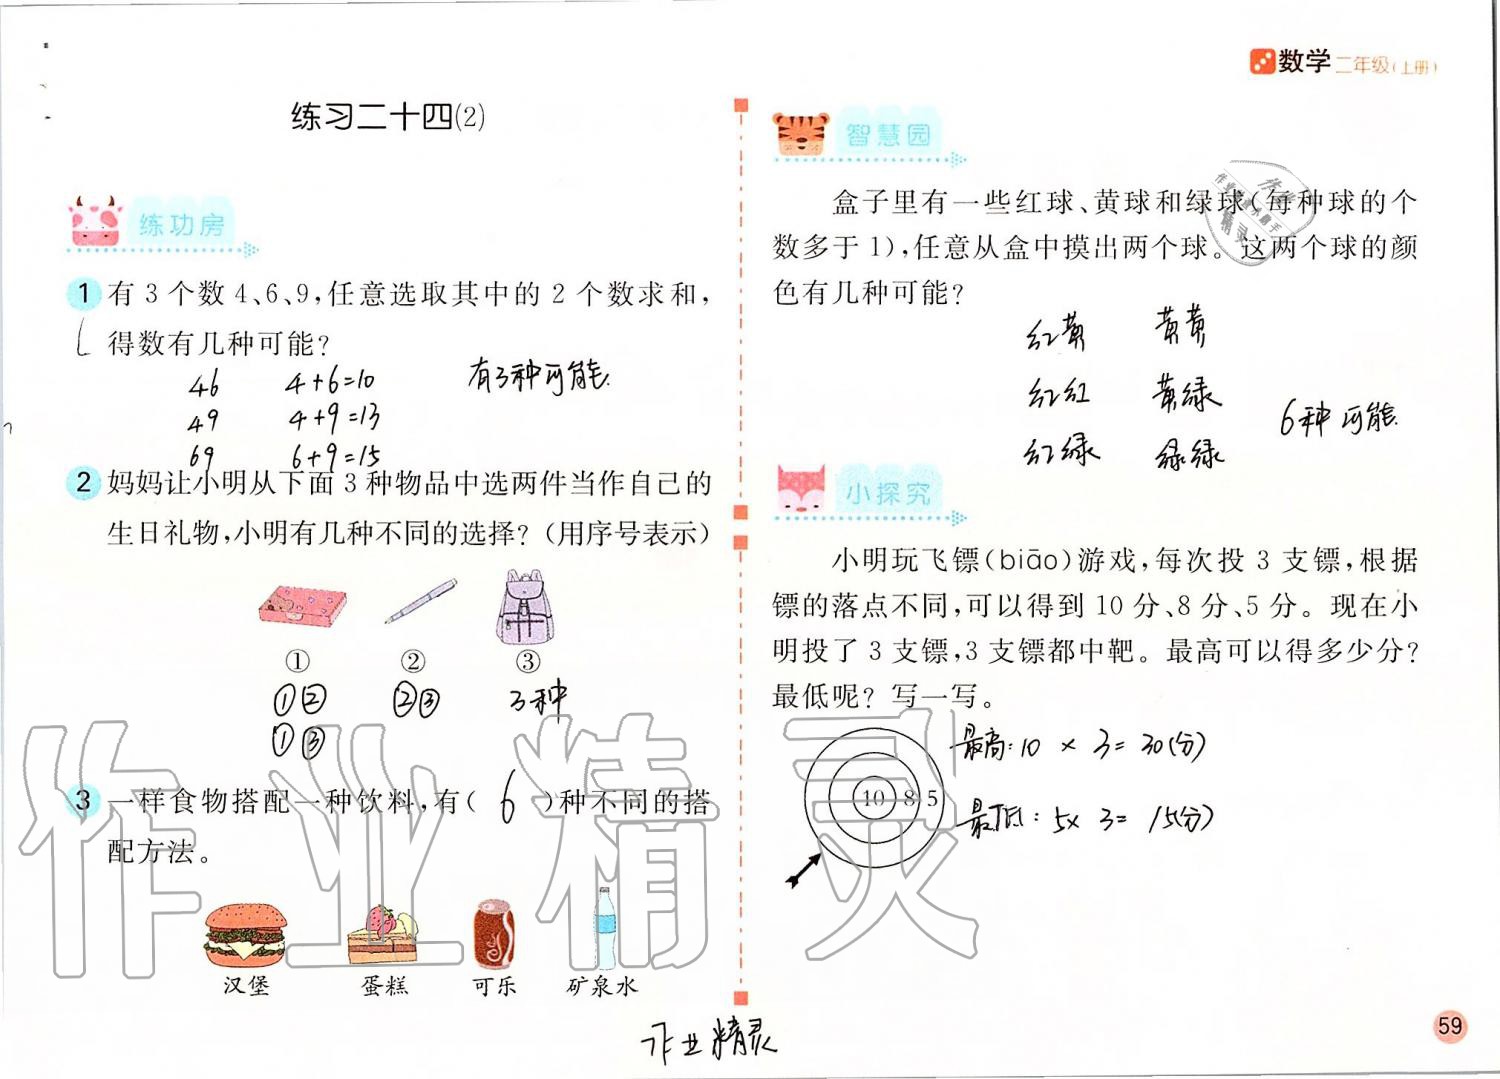 数学二年级(上册)
练习二十四(2)
练功房
1 有3个数4、6、9,任意选取其中的2个数求和,
得数有几种可能?
46 4+6=10 有3种可能.
49 4+9=13
69 6+9=15
2 妈妈让小明从下面3种物品中选两件当作自己的
生日礼物,小明有几种不同的选择?(用序号表示)
① ② ③
①② ②③ 3种
①③
3 一样食物搭配一种饮料,有( 6 )种不同的搭
配方法。
汉堡 蛋糕 可乐 矿泉水
智慧园
盒子里有一些红球、黄球和绿球(每种球的个
数多于1),任意从盒中摸出两个球。这两个球的颜
色有几种可能?
红黄 黄黄
红红 黄绿 6种可能.
红绿 绿绿
小探究
小明玩飞镖(biāo)游戏,每次投3支镖,根据
镖的落点不同,可以得到10分、8分、5分。现在小
明投了3支镖,3支镖都中靶。最高可以得多少分?
最低呢?写一写。
10 8 5
最高:10 × 3=30(分)
最低:5× 3= 15(分)
作业精灵
作业精灵
59